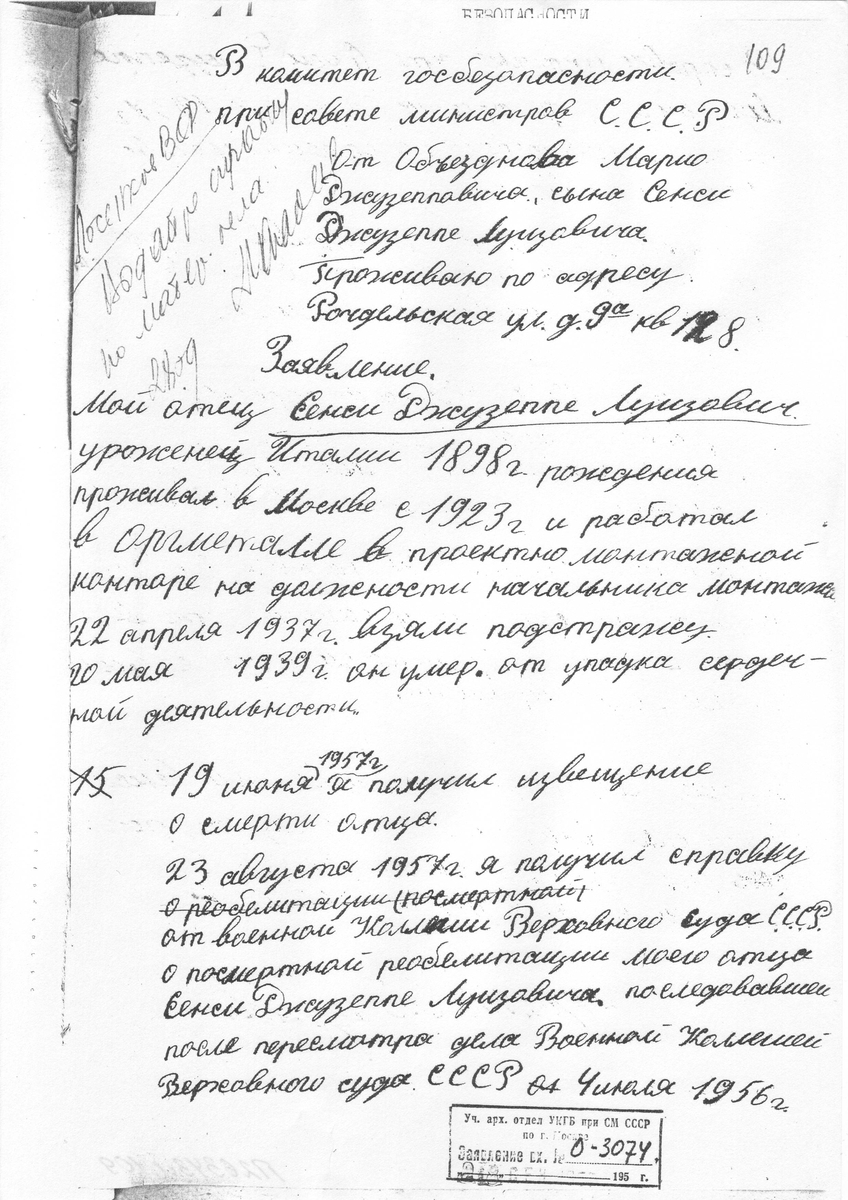 БЕЗОПАСНОСТИ
109
В комитет госбезопасности.
при совете министров С.С.С.Р
от Объезднова Марио
Джузепповича, сына Сенси
Джузеппе Луизовича.
Проживаю по адресу
Рочдельская ул. д. 9а кв 128.
по матер. дела.
Заявление.
Мой отец Сенси Джузеппе Луизович.
уроженец Италии 1898г. рождения
проживал в Москве с 1923г и работал
в Оргметалле в проектно монтажной
конторе на должности начальника монтажа
22 апреля 1937г. взяли подстражу.
20 мая 1939г. он умер. от упадка сердеч-
ной деятельности.
15 19 июня 1957г я получил извещение
о смерти отца.
23 августа 1957г. я получил справку
о реобелитации (посмертной)
от военной Коллегии Верховного суда С.С.С.Р.
о посмертной реобелитации моего отца
Сенси Джузеппе Луизовича. последовавшей
после пересмотра дела Военной Коллегией
Верховного суда СССР от 4 июля 1956г.
Уч. арх. отдел УКГБ при СМ СССР
по г. Москве
Заявление вх. № О-3074.
195 г.